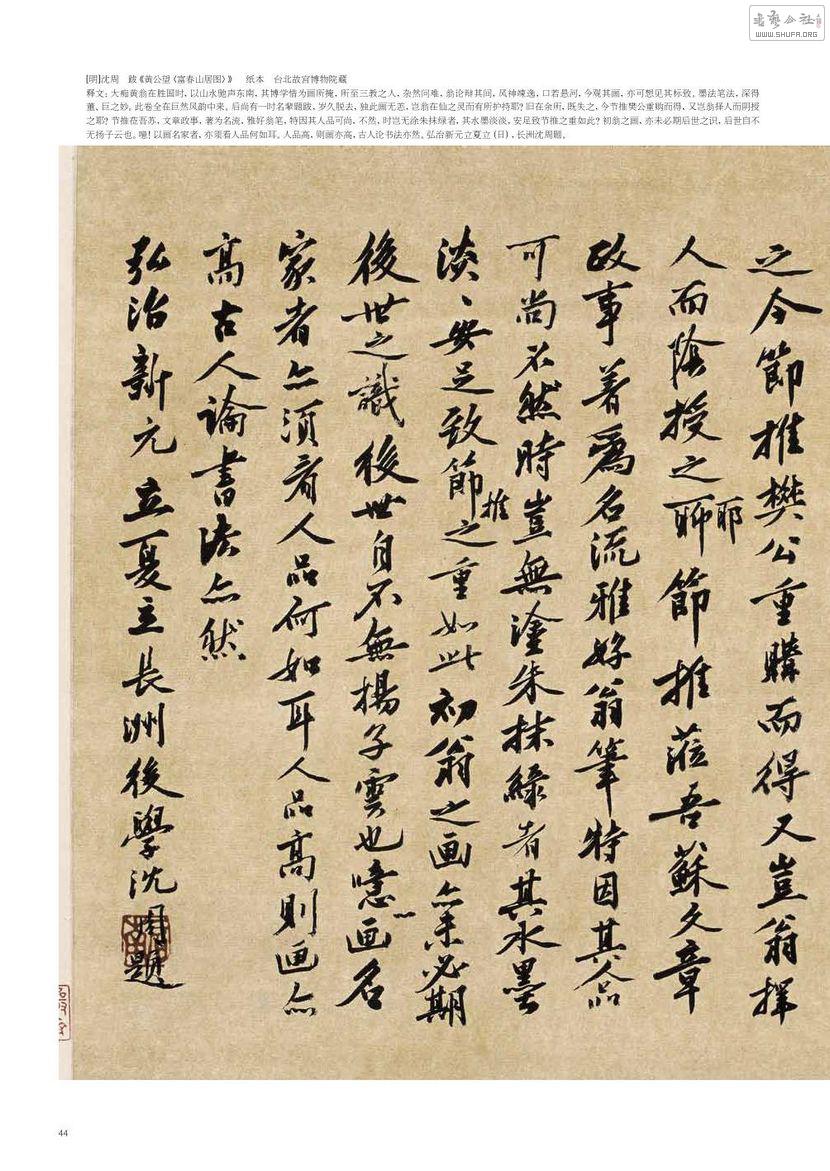 书艺公社
WWW.SHUFA.ORG
[明]沈周 跋《黄公望〈富春山居图〉》 纸本 台北故宫博物院藏
释文：大痴黄翁在胜国时，以山水驰声东南，其博学惜为画所掩，所至三教之人，杂然问难，翁论辩其间，风神竦逸，口若悬河，今观其画，亦可想见其标致。墨法笔法，深得
董、巨之妙，此卷全在巨然风韵中来。后尚有一时名辈题跋，岁久脱去，独此画无恙，岂翁在仙之灵而有所护持耶？旧在余所，既失之，今节推樊公重购而得，又岂翁择人而阴授
之耶？节推莅吾苏，文章政事，著为名流，雅好翁笔，特因其人品可尚，不然，时岂无涂朱抹绿者，其水墨淡淡，安足致节推之重如此？初翁之画，亦未必期后世之识，后世自不
无扬子云也。噫！以画名家者，亦须看人品何如耳。人品高，则画亦高，古人论书法亦然。弘治新元立夏立（日），长洲沈周题。
之今節推樊公重購而得又豈翁擇
人而陰授之聊耶節推蒞吾蘇文章
政事著爲名流雅好翁筆特因其人品
可尚不然時豈無塗朱抹綠者其水墨
淡〻安足致節推之重如此初翁之画亦未必期
後世之識後世自不無揚子雲也噫画名
家者亦須看人品何如耳人品高則画亦
高古人論書法亦然
弘治新元立夏立長洲後學沈周題
44